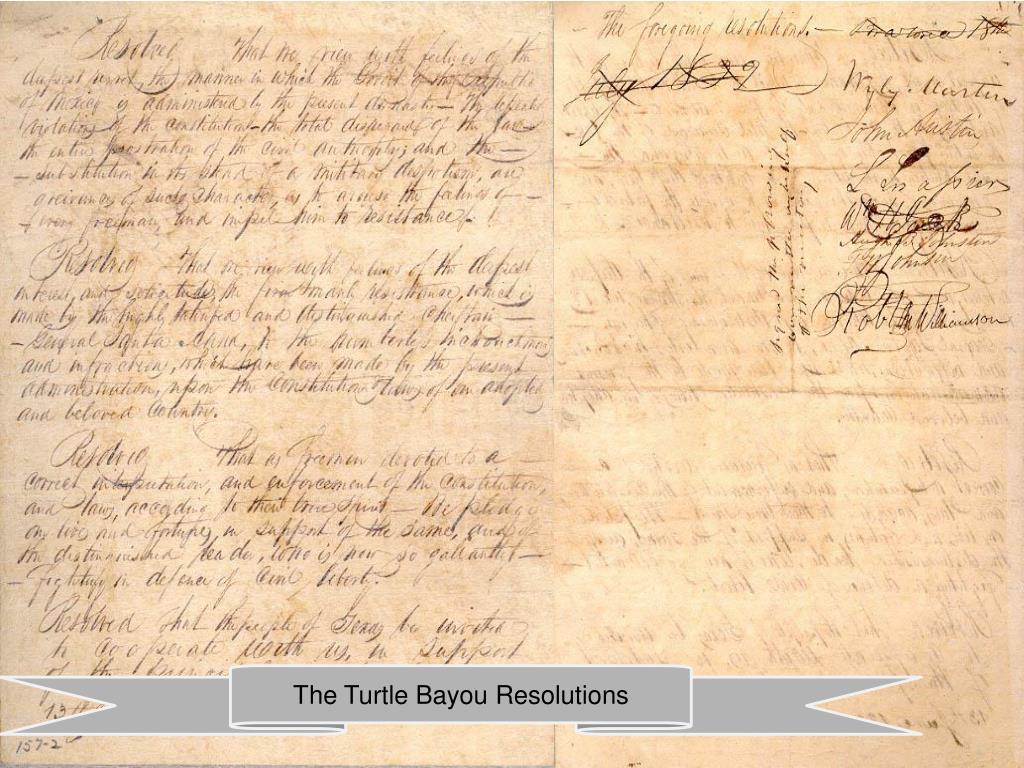 Resolved That we view with feelings of the
deepest regret, the manner in which the Gover of the Republic
of Mexico is administered by the present dynasty— The repeated
violations of the constitution—the total disregard of the laws
the entire prostration of the civil authority; and the —
— substitution in its stead of a military despotism, are
grievances of such character, as to arouse the feelings of —
— every freeman, and impel him to resistance.
Resolved That we view with feelings of the deepest
interest, and solicitude, the firm manly resistance, which is
made by the highly talented and distinguished Cheiftain —
— General Santa Anna, to the numberless incroachments
and infractions, which have been made by the present
administration, upon the Constitution & laws of our adopted
and beloved Country.
Resolved That as Freemen devoted to a —
correct interpretation, and enforcement of the Constitution,
and laws, according to their true Spirit — We pledge
our lives and fortunes, in support of the same, and of
the distinguished leader, who is now so gallantly —
— fighting in defence of Civil liberty.
Resolved That the people of Texas be invited
to cooperate with us, in support
of the
13th
157-2
— The foregoing resolutions. — 13th
July 1832
Wyly Martin
John Austin
Luke Lesassier
Wm H Jack
Hugh B Johnston
F W Johnson
Robt M Williamson
The Turtle Bayou Resolutions